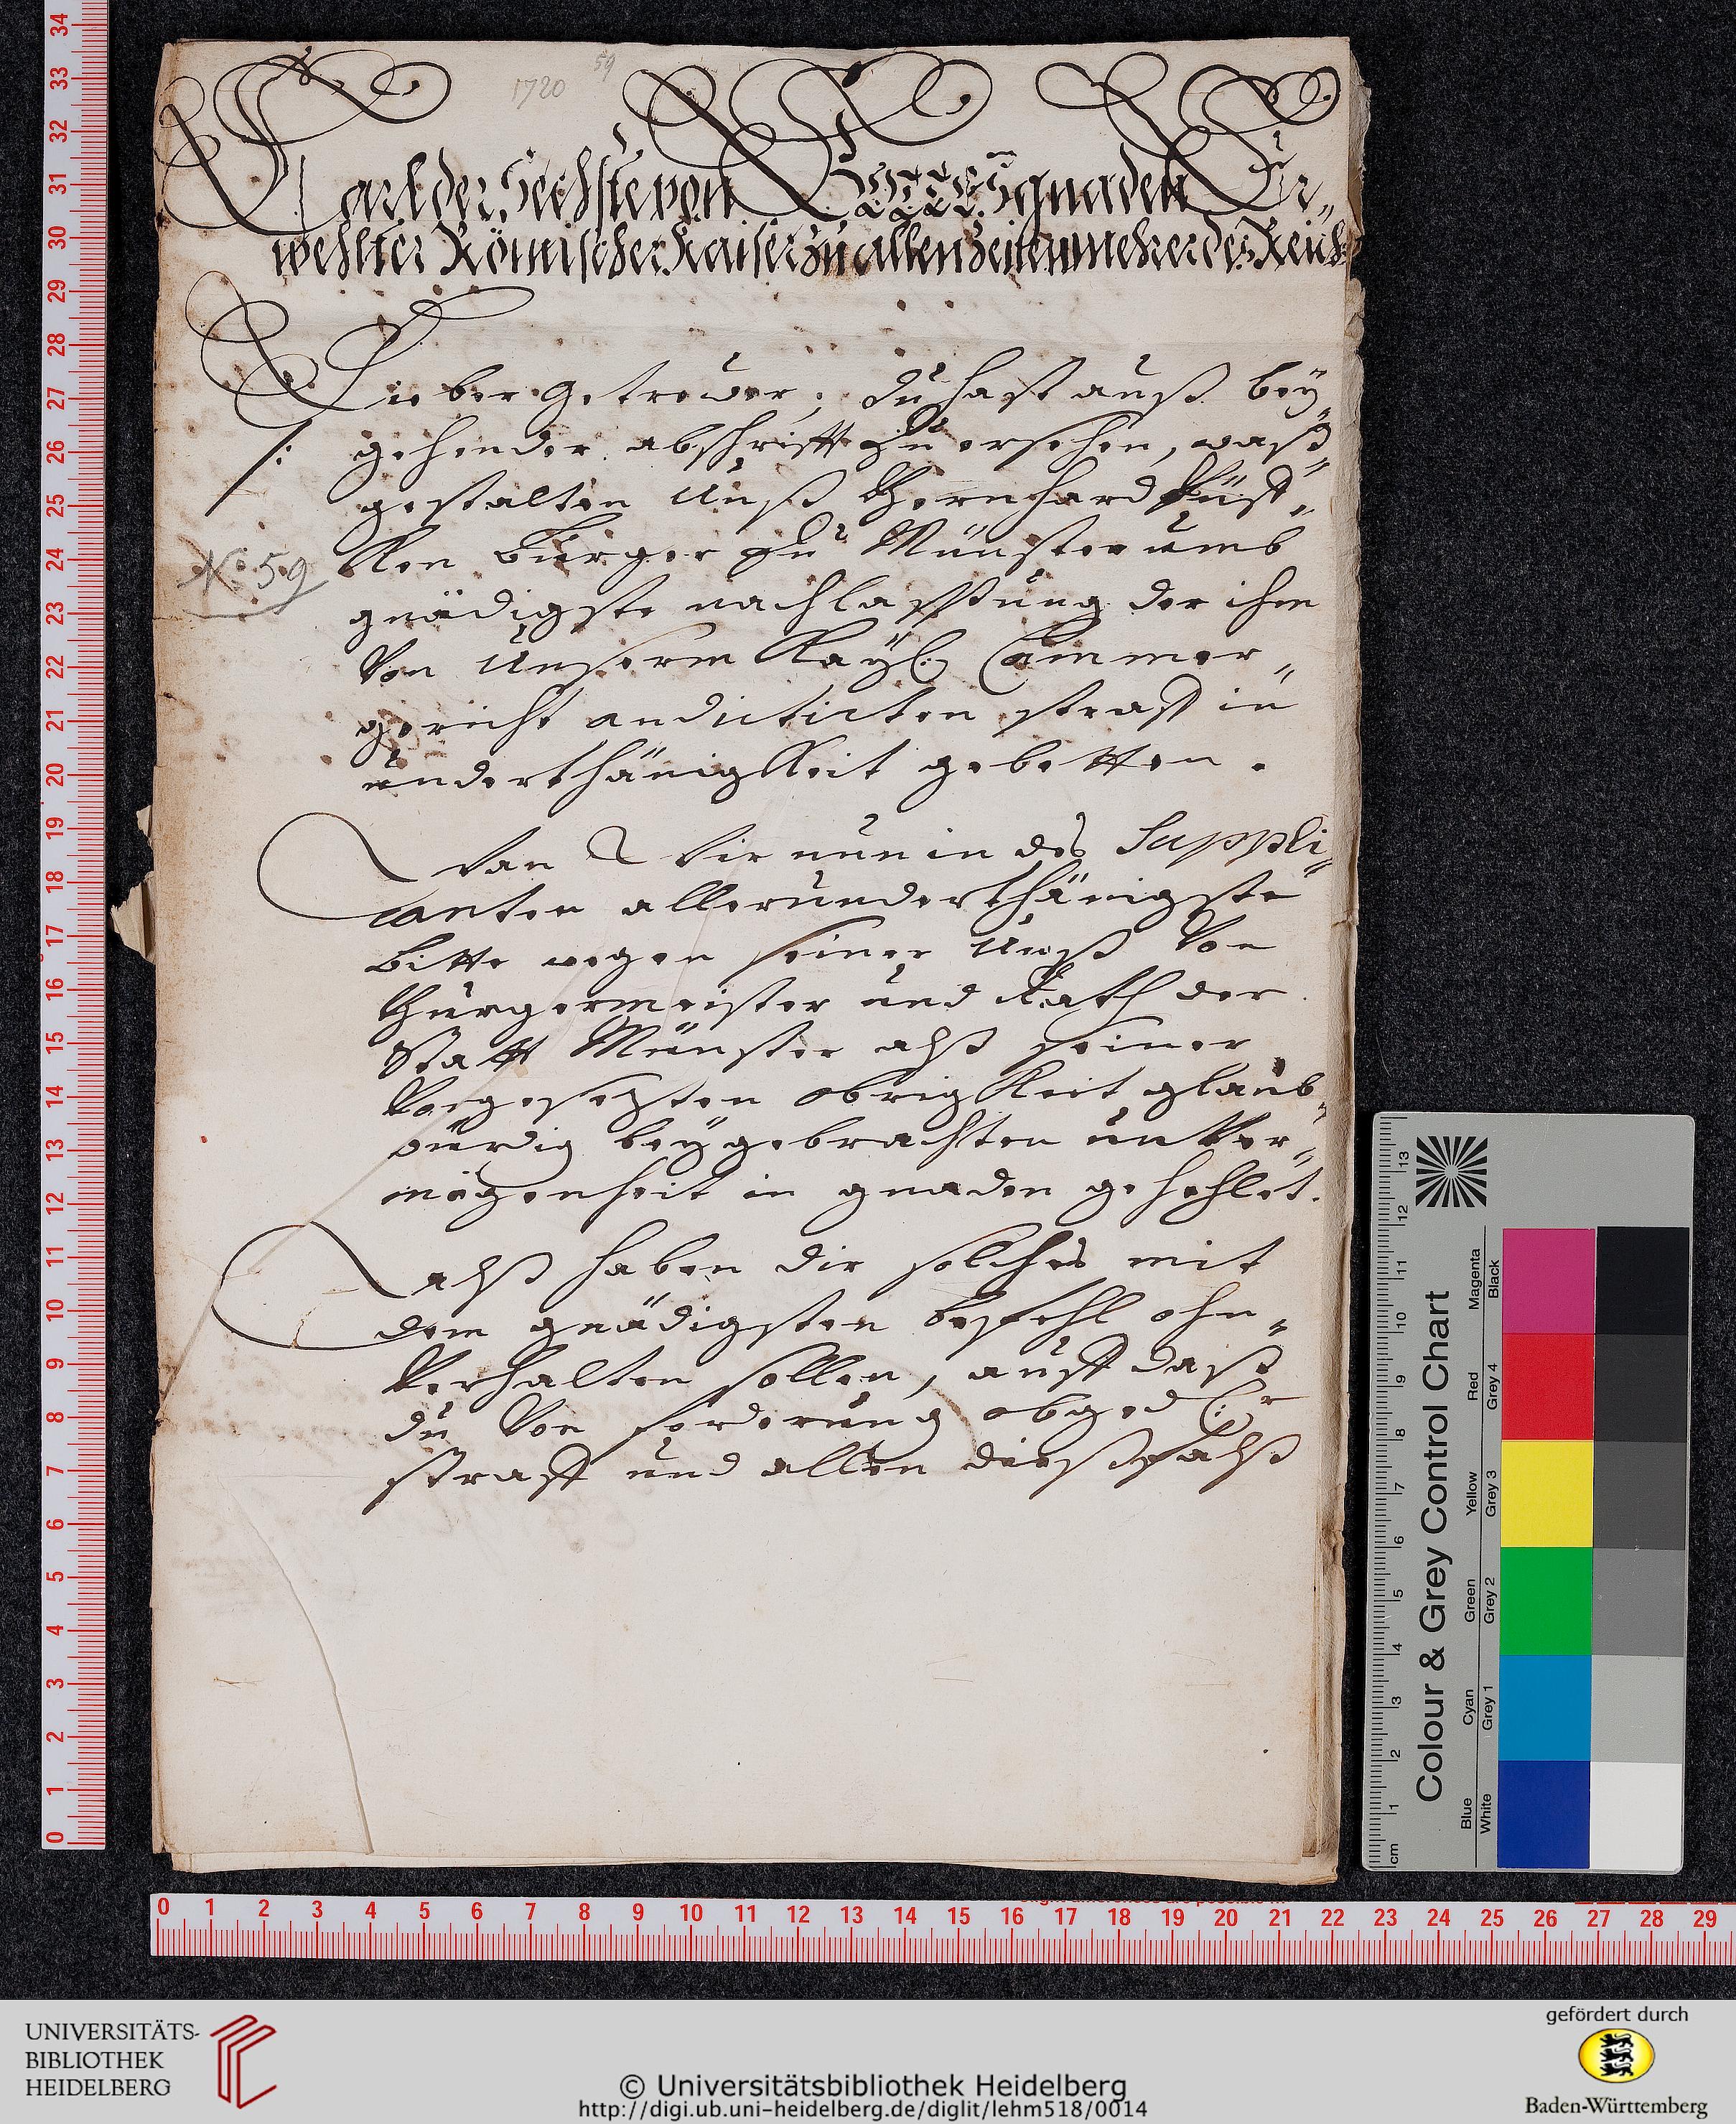 1720
59
Carl der Sechste von GOTTES gnaden Er„
wehlter Römischer Kaiser zu allen Zeiten mehrer des Reichs
Lieber Getrewer; du hast auß bey„
/: gehender abschrifft zu ersehen, waß„
gestalten Unß Bernhard
Burger zu Münster umb
N: 59
gnädigste nachlassung der ihm
Von Unserm Kayl: Cammer„
gericht andictirten straff in
underthänigkeit gebetten.
Wan Wir nun in des Suppli„
canten allerunderthänigste
bitte wegen seiner Unß Von
Bürgermeister und Rath der
Statt Münster alß seiner
Vorgesezten obrigkeit glaub„
würdig beygebrachten unVer„
mögenheit in gnaden gehehlet.
Alß haben dir solches mit
dem gnädigsten befehl ohn„
Verhalten sollen, auff daß
du Von forderung obged:r
straff und allen dießfalß
UNIVERSITÄTS-
BIBLIOTHEK
HEIDELBERG
© Universitätsbibliothek Heidelberg
http://digi.ub.uni-heidelberg.de/diglit/lehm518/0014
gefördert durch
Baden-Württemberg
Colour & Grey Control Chart
Blue Cyan Green Yellow Red Magenta
White Grey 1 Grey 2 Grey 3 Grey 4 Black
cm 1 2 3 4 5 6 7 8 9 10 11 12 13
34
33
32
31
30
29
28
27
26
25
24
23
22
21
20
19
18
17
16
15
14
13
12
11
10
9
8
7
6
5
4
3
2
1
0
0 1 2 3 4 5 6 7 8 9 10 11 12 13 14 15 16 17 18 19 20 21 22 23 24 25 26 27 28 29